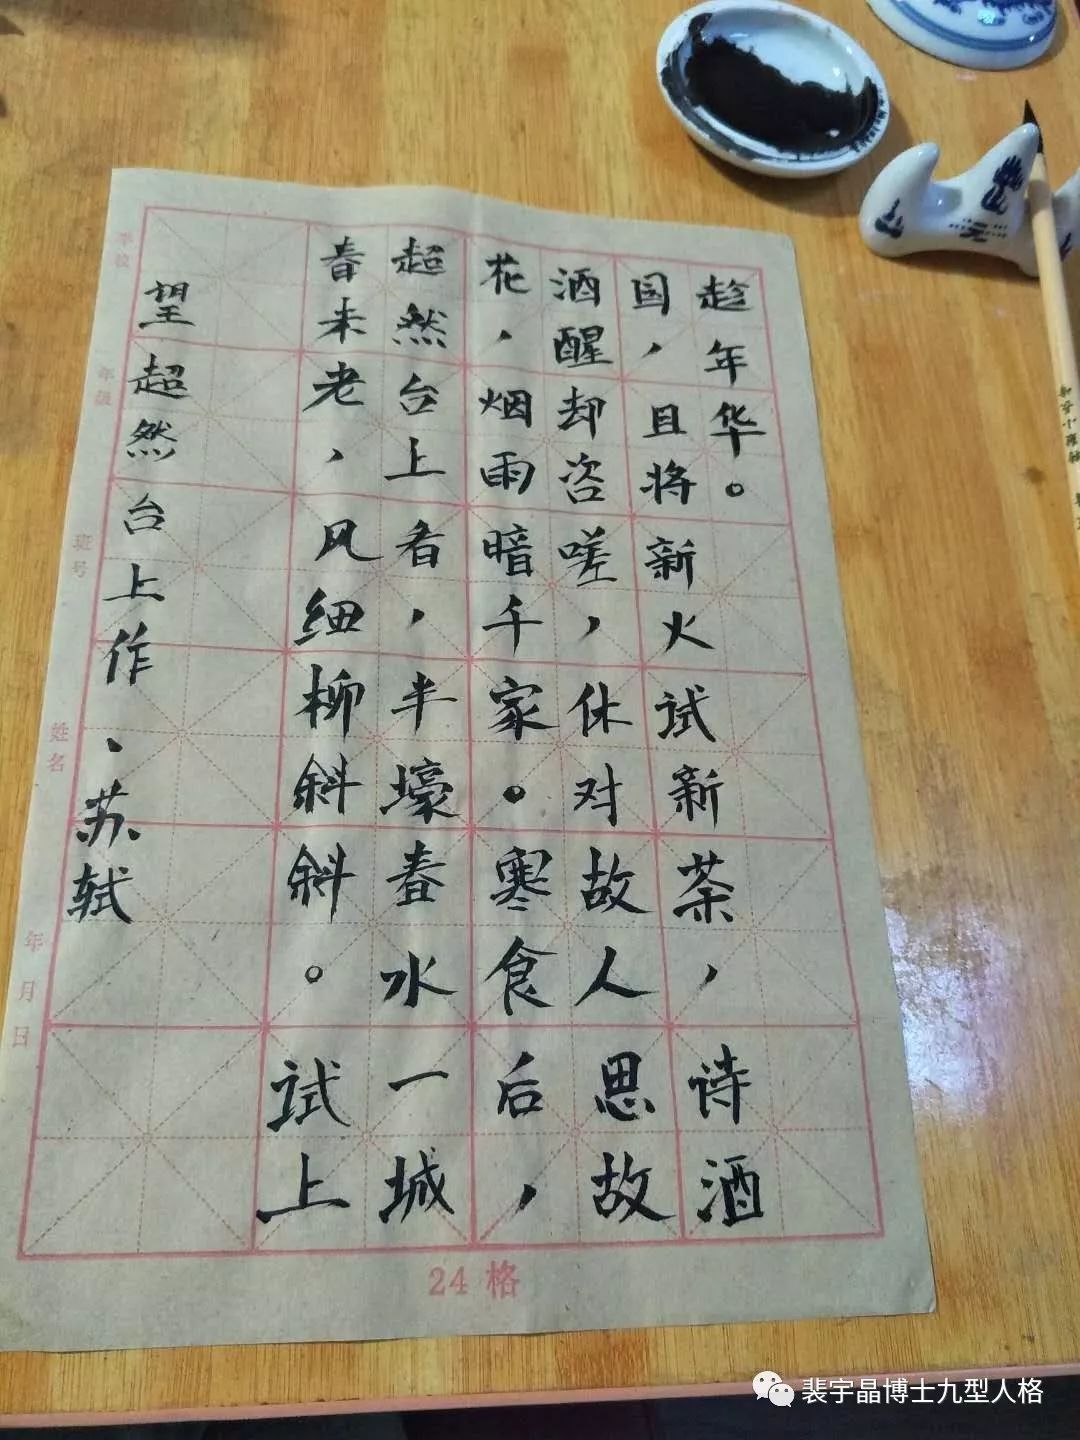 学校 年级 班号 姓名 年 月 日
望超然台上作、苏轼
春未老，风细柳斜斜。试上
超然台上看，半壕春水一城
花，烟雨暗千家。寒食后，
酒醒却咨嗟，休对故人思故
国，且将新火试新茶，诗酒
趁年华。
24 格
裴宇晶博士九型人格